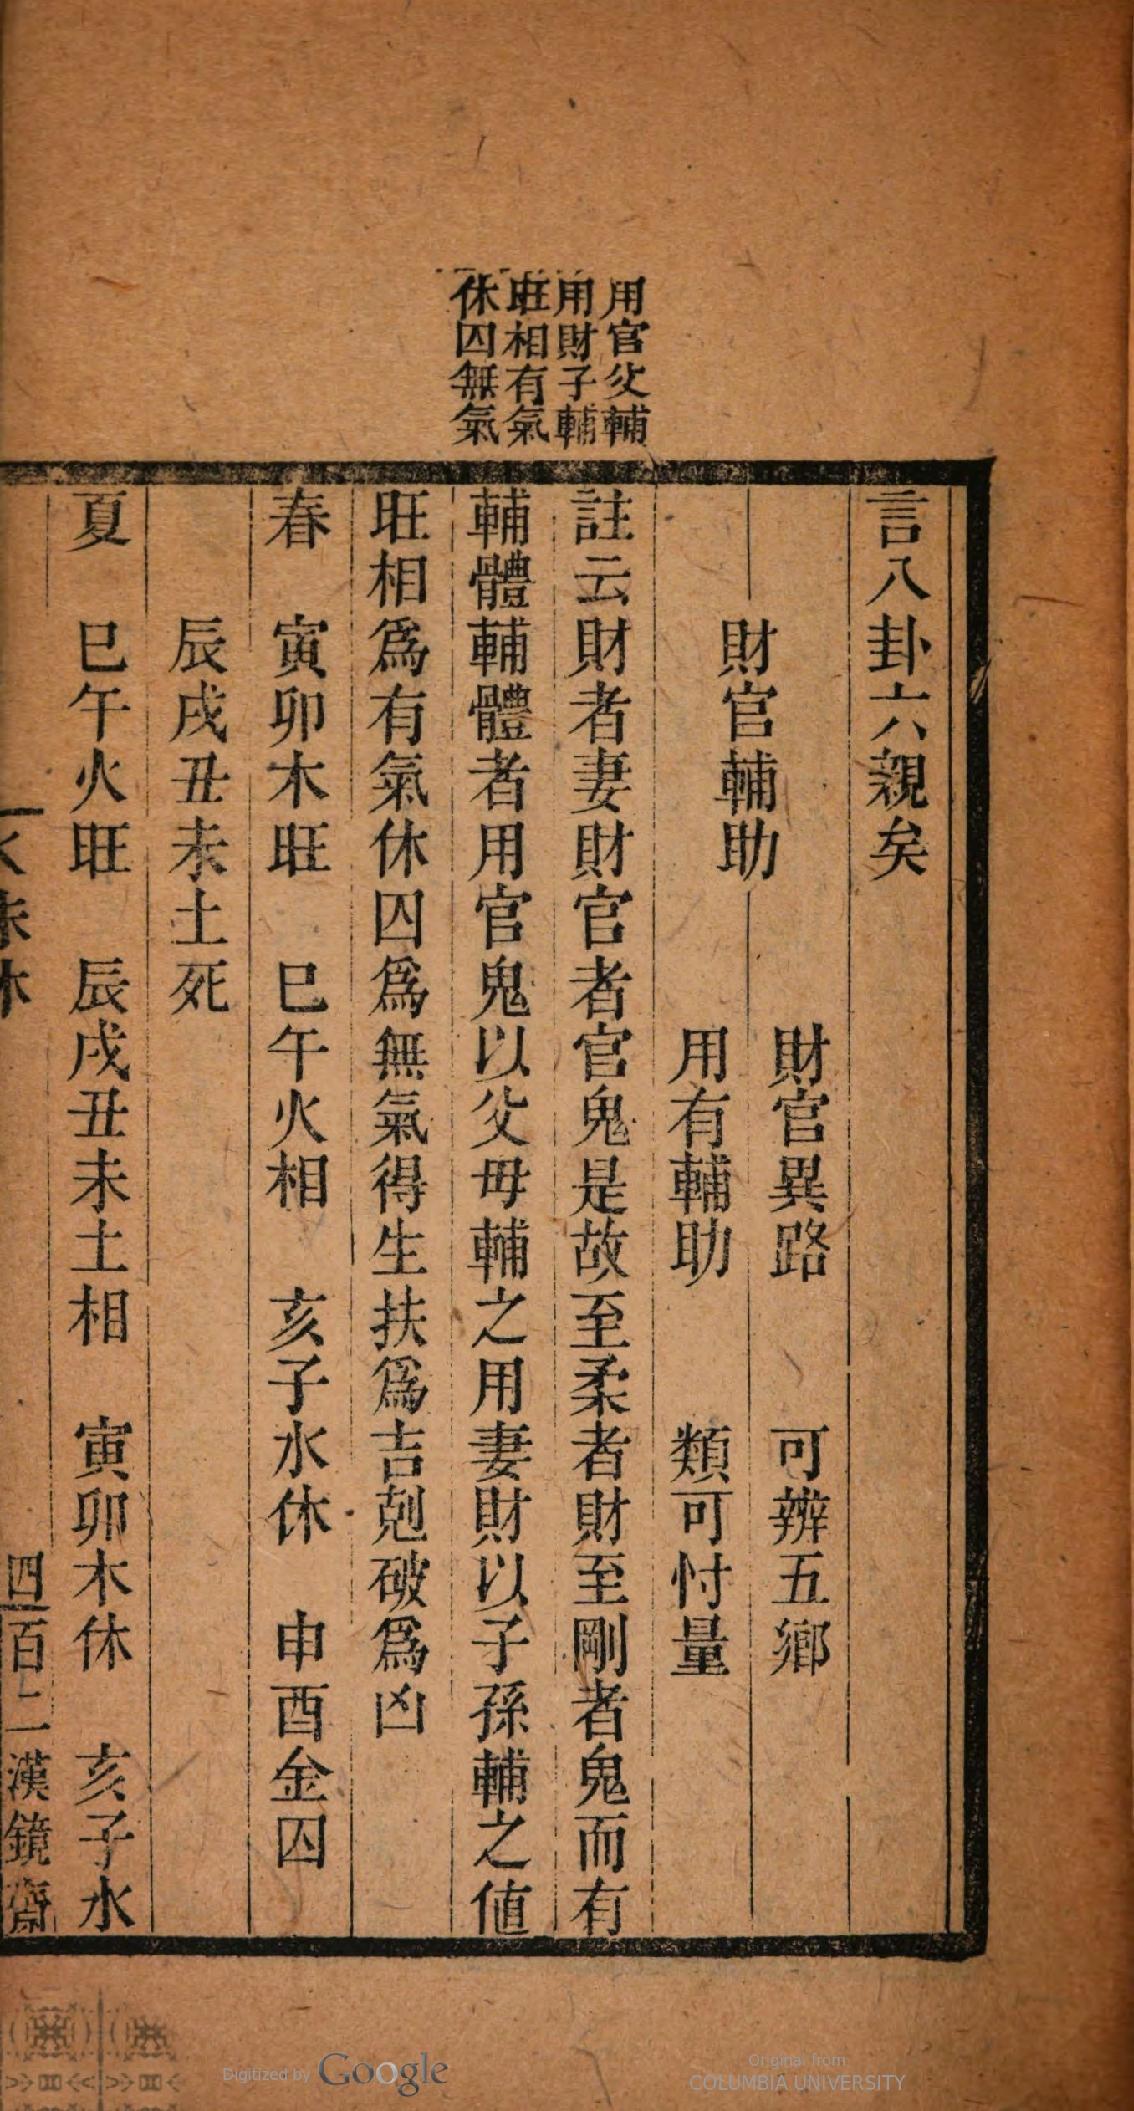 用官父輔
用財子輔
旺相有氣
休囚無氣
言八卦六親矣
財官異路　可辨五鄉
財官輔助
用有輔助　類可忖量
註云財者妻財官者官鬼是故至柔者財至剛者鬼而有
輔體輔體者用官鬼以父母輔之用妻財以子孫輔之値
旺相爲有氣休囚爲無氣得生扶爲吉剋破爲凶
春　寅卯木旺　巳午火相　亥子水休　申酉金囚
辰戌丑未土死
夏　巳午火旺　辰戌丑未土相　寅卯木休　亥子水
四百二漢鏡齋
Digitized by Google
Original from
COLUMBIA UNIVERSITY